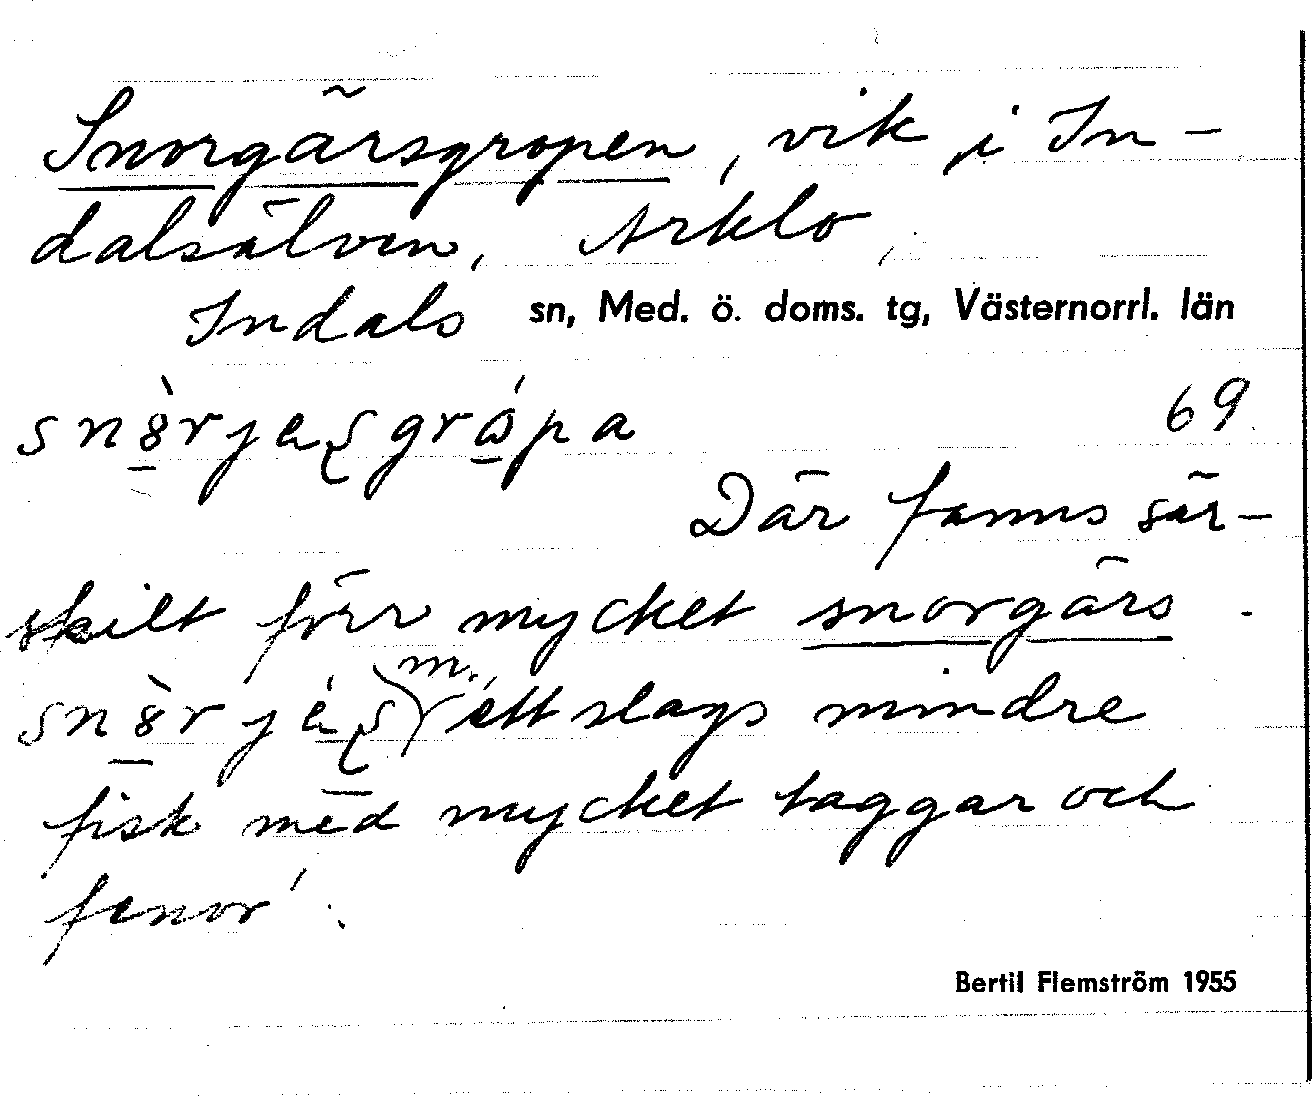 Snorgärsgropen, vik i In-
dalsälven, Arklo,
Indals sn, Med. ö. doms. tg, Västernorrl. län
69
Där fanns sär-
skilt förr mycket snorgärs.
m. 'ett slags mindre
fisk med mycket taggar och
fenor'.
Bertil Flemström 1955